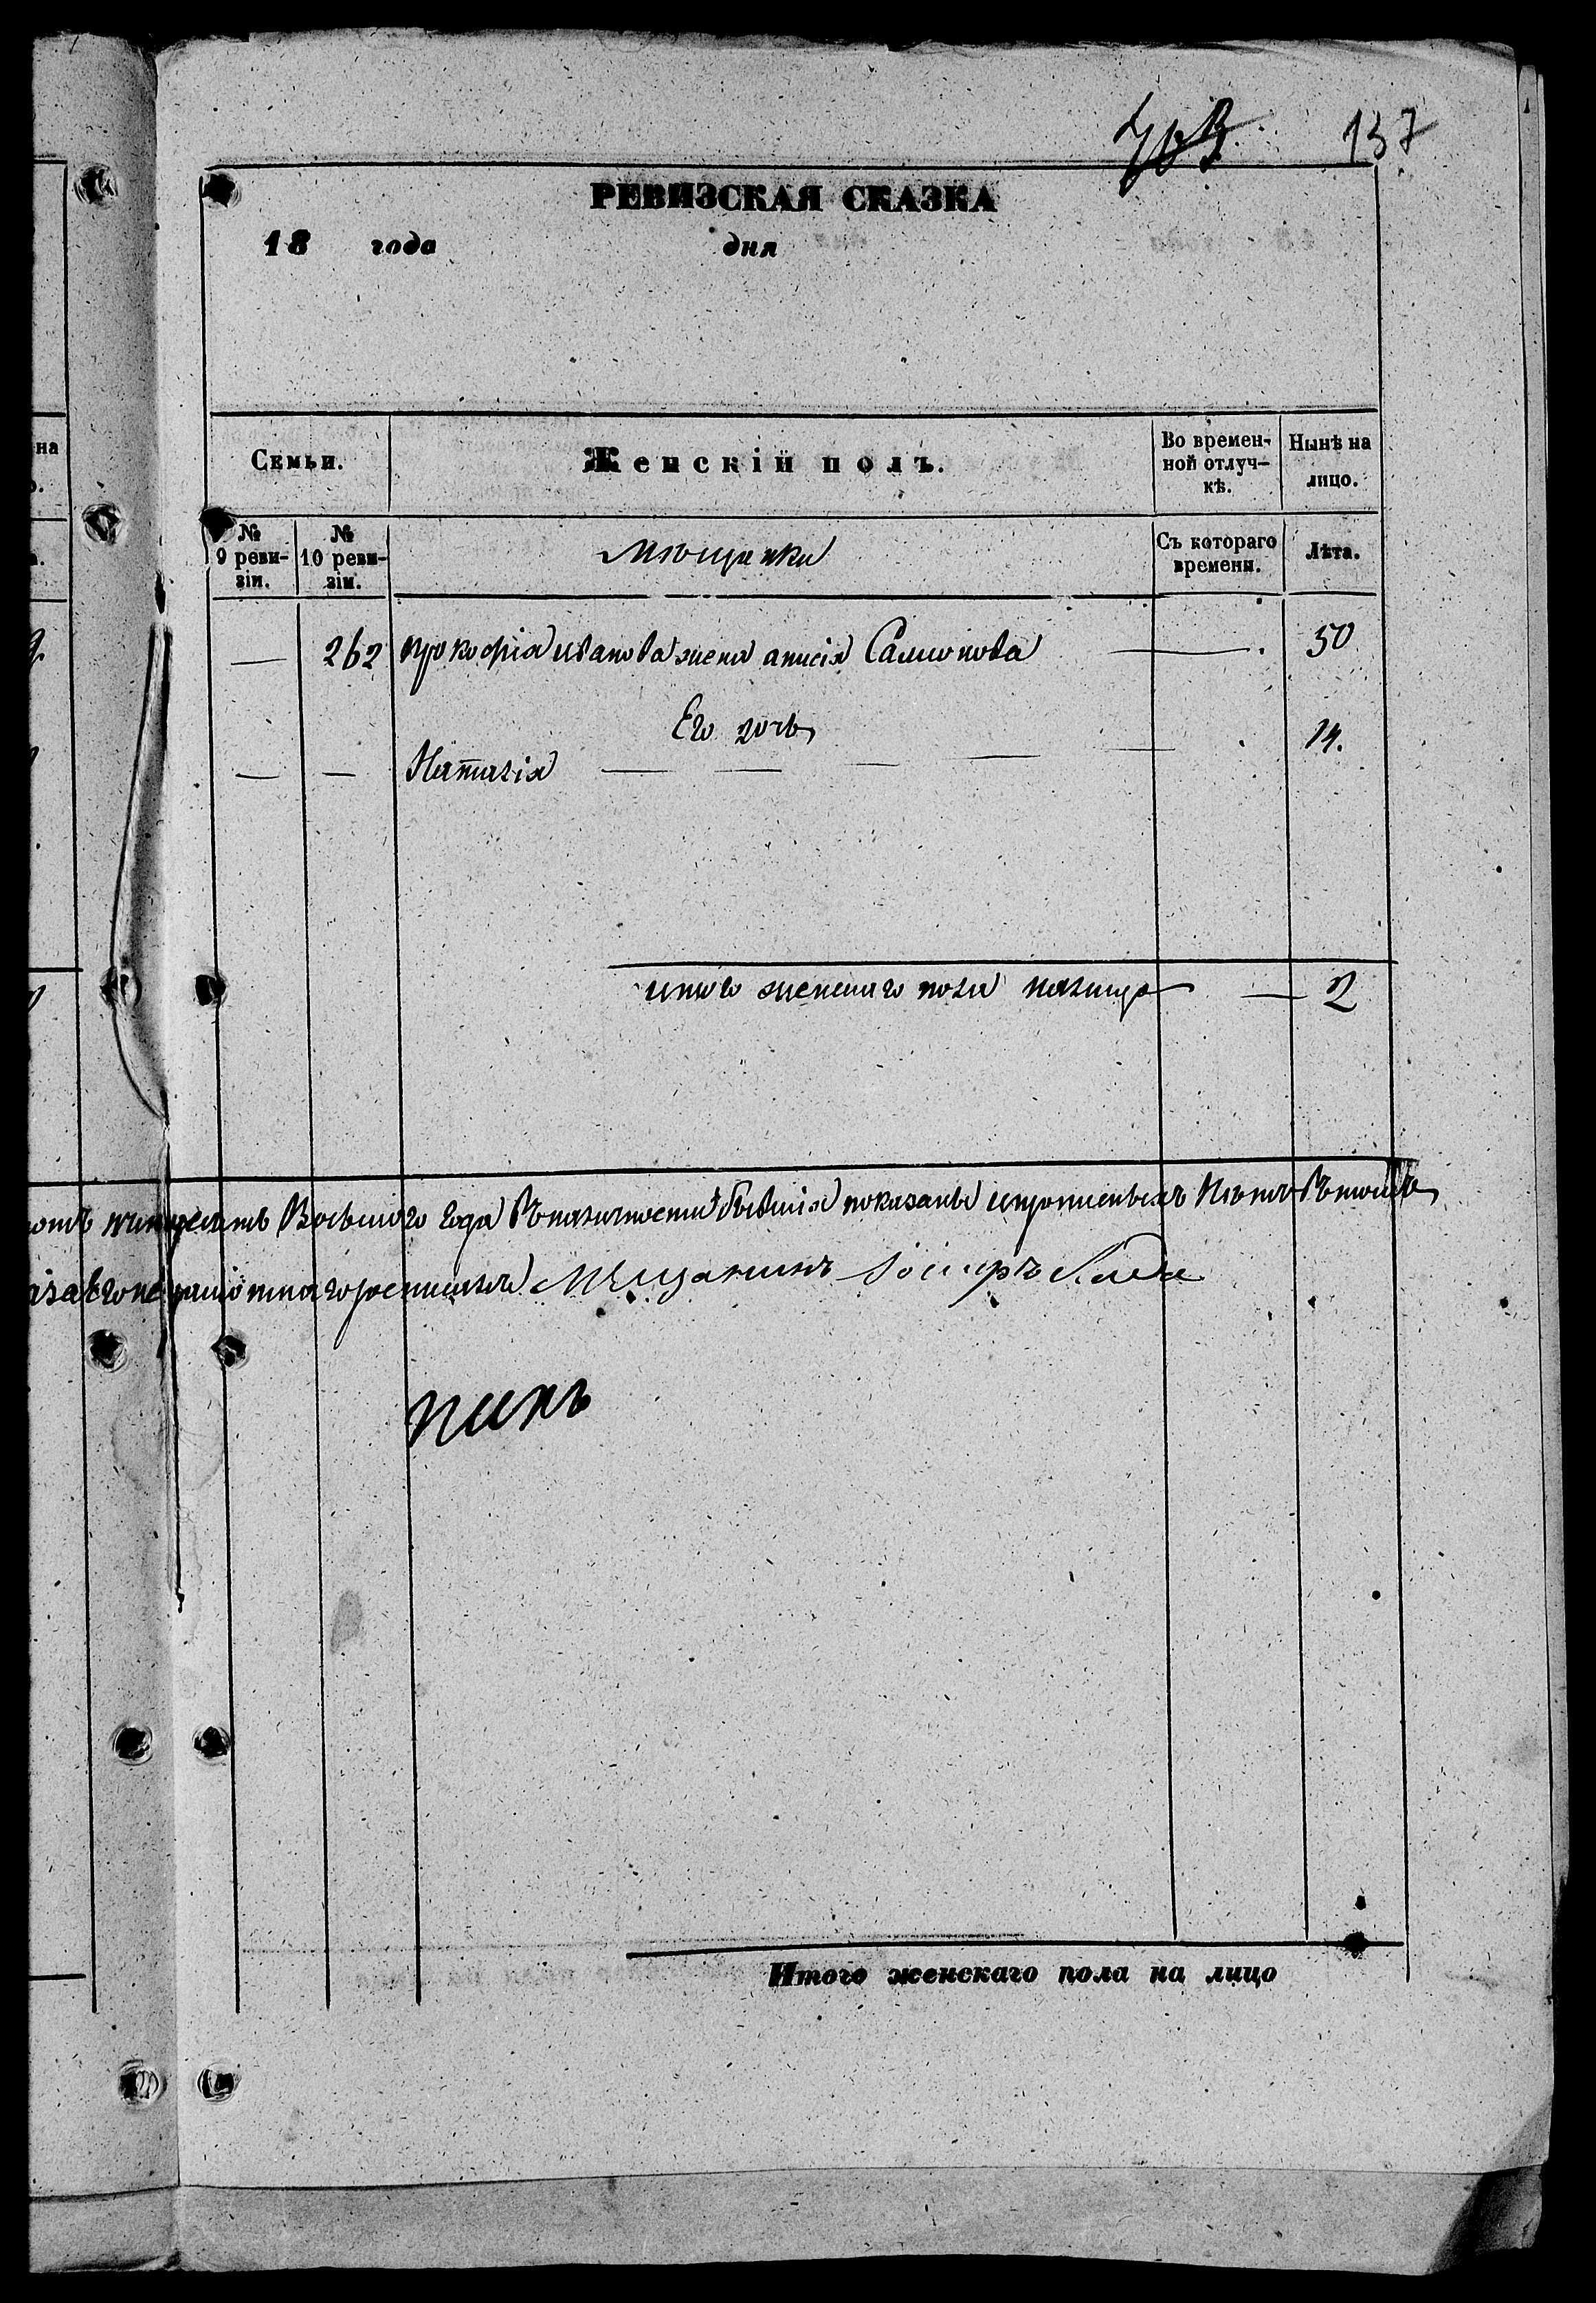 137
РЕВИЗСКАЯ СКАЗКА
18 года дня
Семьи. Женскій полъ. Во времен-
ной отлуч-
кѣ. Нынѣ на
лицо.
№
9 реви-
зіи. №
10 реви-
зіи. Мѣщанки Съ котораго
времени. Лѣта.
— 262 прокофія иванова жена анисія Самсонова — 50
Его дочь 14.
— — Наталія — — — —
итого женскаго пола налицо — 2
Восьмого года Въ наличности бывшія показаны и прописныхъ Нѣтъ Въ томъ
Мѣщанинъ
нинъ
Итого женскаго пола на лицо